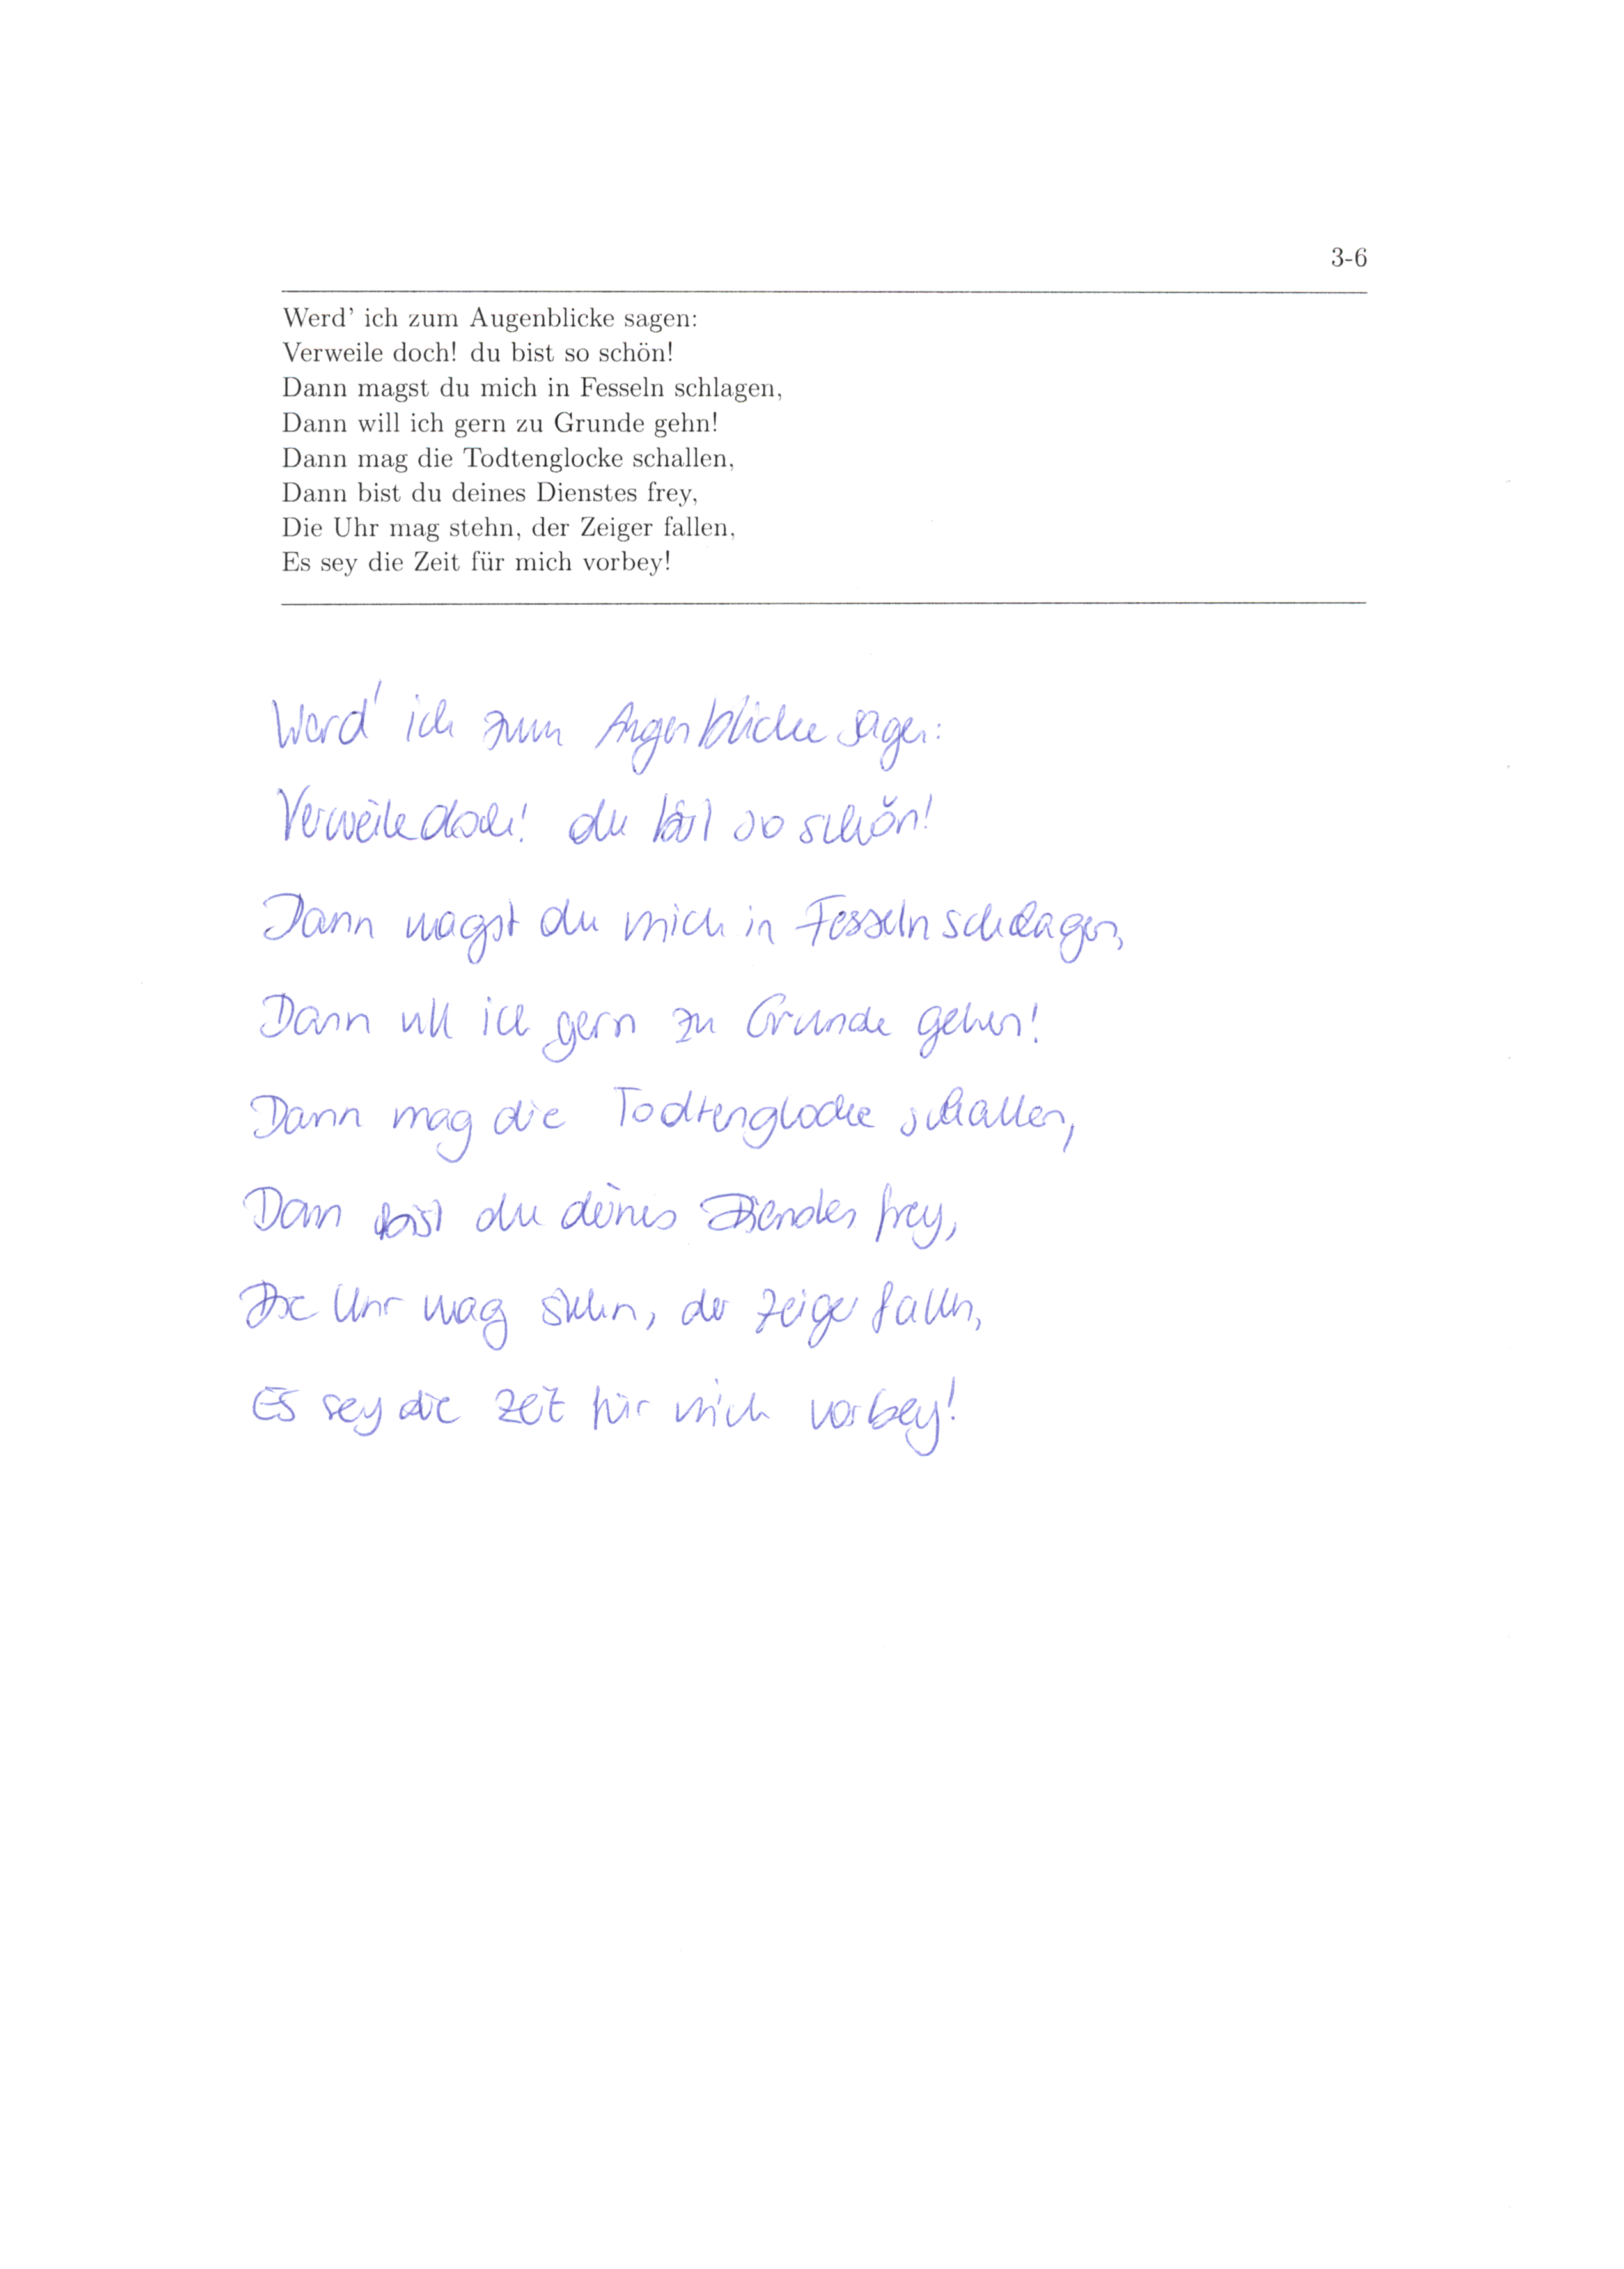 3-6
Werd' ich zum Augenblicke sagen:
Verweile doch! du bist so schön!
Dann magst du mich in Fesseln schlagen,
Dann will ich gern zu Grunde gehn!
Dann mag die Todtenglocke schallen,
Dann bist du deines Dienstes frey,
Die Uhr mag stehn, der Zeiger fallen,
Es sey die Zeit für mich vorbey!
Werd' ich zum Augenblicke sagen:
Verweile doch! du bist so schön!
Dann magst du mich in Fesseln schlagen,
Dann will ich gern zu Grunde gehen!
Dann mag die Todtenglocke schallen,
Dann bist du deines frey,
Die Uhr mag stehn, der Zeiger fallen,
Es sey die Zeit für mich vorbey!